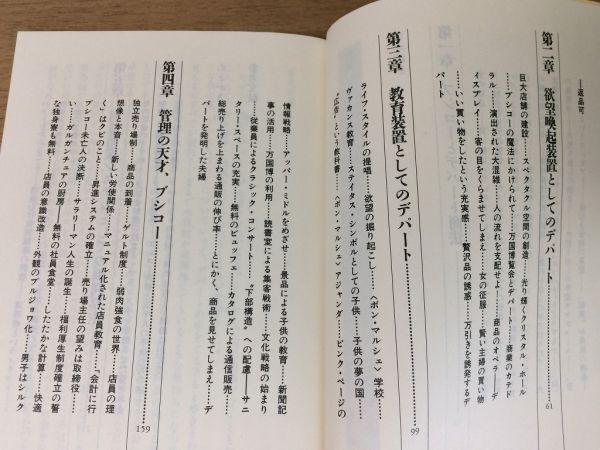 ――返品可
第二章 欲望喚起装置としてのデパート……………61
巨大店舗の建設……スペクタクル空間の創造……光り輝くクリスタル・ホール
……ブシコーの魔法にかけられて……万国博覧会とデパート……商業のカテド
ラル……演出された大混雑……人の流れを支配せよ！……商品のオペラ――デ
ィスプレイ……客の目をくらませてしまえ……女の征服……賢い主婦の買い物
……いい買い物をしたという充実感……贅沢品の誘惑……万引きを誘発するデ
パート
第三章 教育装置としてのデパート……………99
ライフ・スタイルの提唱……欲望の掘り起こし……〈ボン・マルシェ〉学校……
ヴァカンス教育……ステイタス・シンボルとしての子供……子供の夢の国……
“広告”という教科書……〈ボン・マルシェ〉アジャンダ……ピンク・ページの
情報戦略……アッパー・ミドルをめざせ……景品による子供の教育……新聞記
事の活用……万国博の利用……読書室による集客戦術……文化戦略の始まり
……従業員によるクラシック・コンサート……“下部構造”への配慮――サニ
タリー・スペースの充実……無料のビュッフェ……カタログによる通信販売……
総売り上げを上まわる通販の伸び率……とにかく、商品を見せてしまえ……デ
パートを発明した夫婦
第四章 管理の天才、ブシコー……………159
独立売り場制……商品の到着……ゲルト制度……弱肉強食の世界……店員の理
想像と本音……新しい労使関係……マニュアル化された店員教育……『会計に行
く』はクビのこと……昇進システムの確立……売り場主任の望みは取締役……
ブシコー未亡人の決断……サラリーマン人生の誕生……福利厚生制度確立の誓
い……ガルガンチュアの厨房――無料の社員食堂……したたかな計算……快適
な独身寮も無料……店員の意識改造……外観のブルジョワ化……男子はシルク